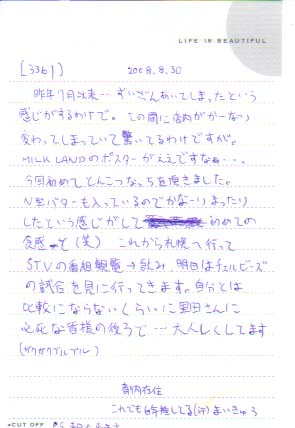 LIFE IS BEAUTIFUL
[3361] 2008.8.30
昨年7月以来…ずいぶんあいてしまったという
感じがするわけで。この間に店内がかーなり
変わってしまっていて驚いてるわけですが。
MILK LANDのポスターがええですなぁ…。
今回初めてとんこつなっちを頂きました。
N生バターも入っているのでかなーりまったり
したという感じがして 初めての
食感っと(笑) これから札幌へ行って
STVの番組観覧→飲み、明日は
の試合を見に行ってきます。自分とは
比較にならないくらいに黒田さんに
必死な皆様の後ろで…大人しくしてます
(ガクガクブルブル)
市内在住
これでも6年推してる(汗)まいきゅう
CUT OFF